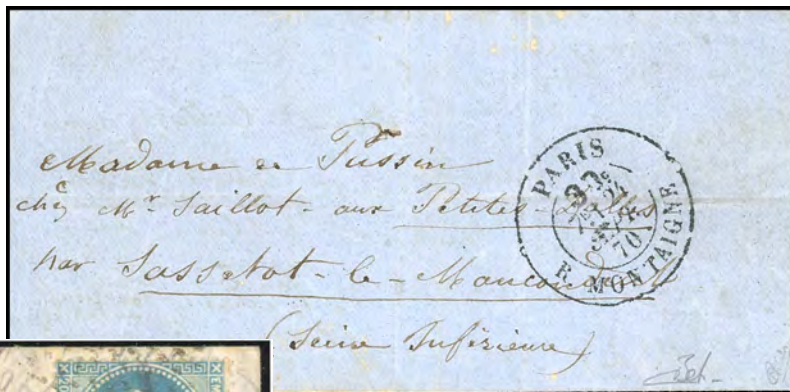 Madame de Pussin
chez Mr Saillot - aux Petites-Dalles
par Sassetot-le-Mauconduit
(Seine Inférieure)
PARIS
24
SEPT
70
R. MONTAIGNE
20